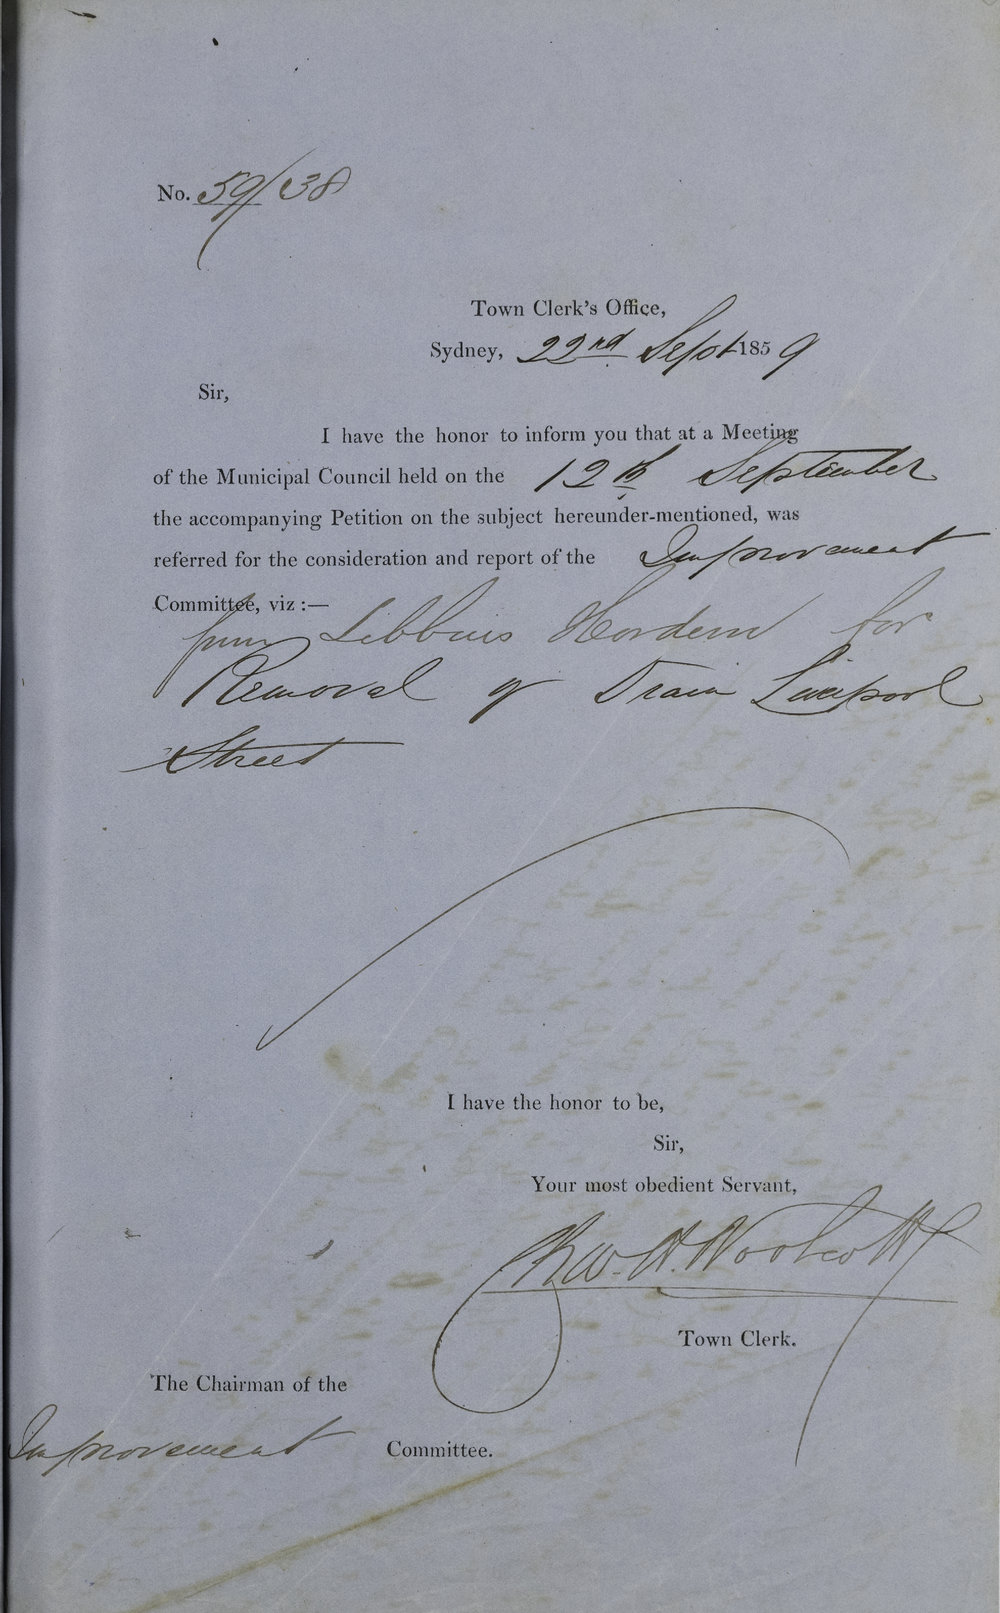 No. 59/138
Town Clerk's Office,
Sydney, 22nd Sept 1859
Sir,
I have the honor to inform you that at a Meeting
of the Municipal Council held on the 12th September
the accompanying Petition on the subject hereunder-mentioned, was
referred for the consideration and report of the Improvement
Committee, viz :—
from Lebbeus Hordern for
Removal of Drain Liverpool
Street
I have the honor to be,
Sir,
Your most obedient Servant,
Woolcott
Town Clerk.
The Chairman of the
Improvement Committee.